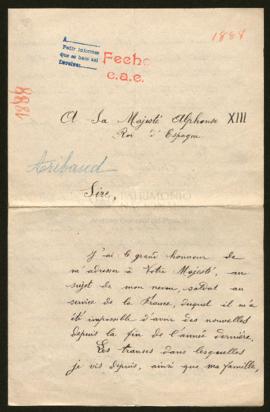 A
Pedir informes
que se haga así
Devolver
Fecho
c.a.e.
1888
1888
A Sa Majesté Alphonse XIII
Roi d'Espagne
Aribaud
Sire,
J'ai le grand honneur de
m'adresser à Votre Majesté, au
sujet de mon neveu, soldat au
service de la France, duquel il m'a
été impossible d'avoir des nouvelles
depuis la fin de l'année dernière.
Les transes dans lesquelles
je vis depuis, ainsi que ma famille,